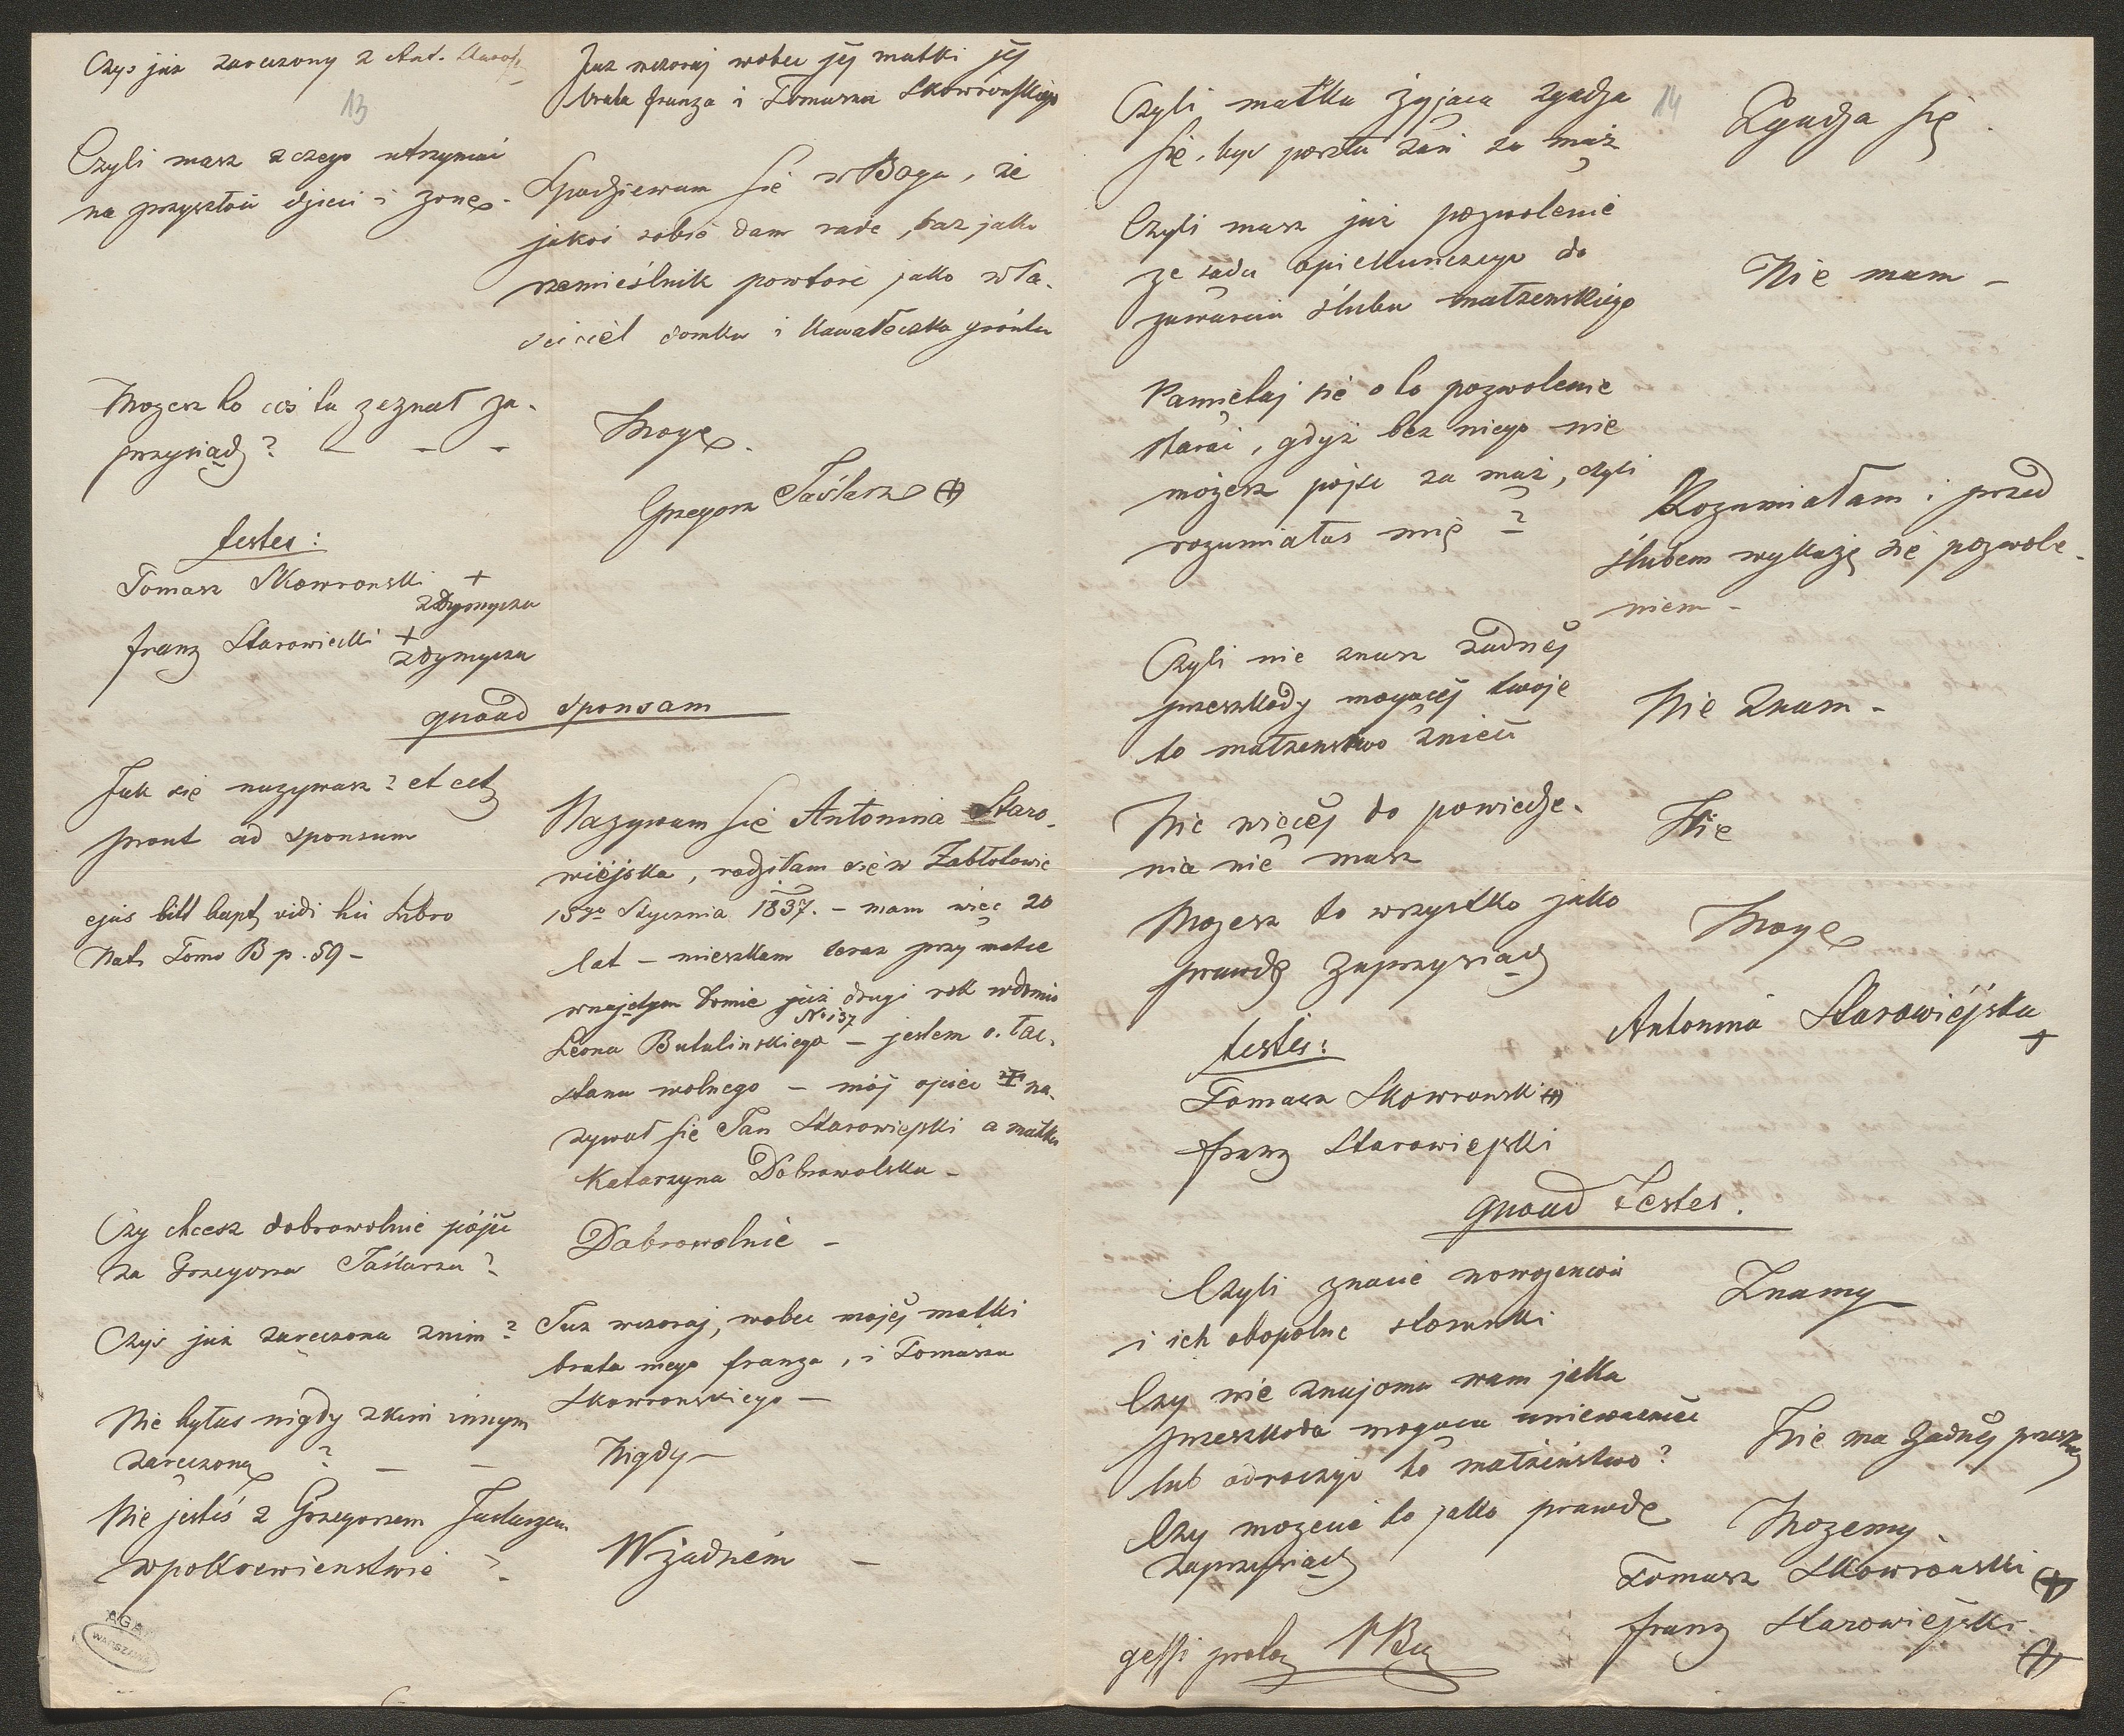 Czyś już zaręczony z Ant. Starow
13
Już wczoraj wobec jéj matki jéj
brata Franza i Tomasza Skowrońskiego
Czyli masz z czego utrzymać
na przyszłość dzieci i żonę.
Spodziewam się w Bogu, że
jakoś sobie dam radę, raz jako
rzemieślnik powtore jako wła-
ściciel domku i kawałeczka gróntu
Możesz to coś tu zeznał za-
przysiądz? - - -
Mogę.
Grzegorz Taślarz (+)
testes:
Tomasz Skowronski +
z Dymycza
Franz Starowiecki +
z Dymycza
quoad sponsam
Jak się nazywasz? et cet
prout ad sponsum
Nazywam się Antonina Staro-
wiéjska, rodziłam się w Zabłotowie
15go Stycznia 1837. - mam więc 20
lat - mieszkam teraz przy matce
w najętym domie już drugi rok w domie
No 137
Leona Butulinskiego - jestem o. łac.
stanu wolnego - mój ojciec + na-
zywał się Jan Starowiejski a matka
Katarzyna Dobrowolska -
ejus bill bapt vidi hic Libro
Nat. Tomo B p. 59 -
Czy chcesz dobrowolnie pójść
za Grzegorza Taślarza?
Dobrowolnie -
Czyś już zaręczona z nim?
Już wczoraj, wobec mojéj matki
brata mego Franza, i Tomasza
Skowronskiego -
Nie byłas nigdy z kim innym
zaręczoną ? - -
Nigdy -
Nie jesteś z Grzegorzem Taślarzem
w pokrewienstwie ?
W żadném -
AGAD
WARSZAWA
Czyli matka żyjąca zgadza
się, byś poszła zań za mąż
14
Zgadza się.
Czyli masz już pozwolenie
ze sądu opiekunczego do
zawarcia ślubu małżenskiego
Nie mam -
Pamiętaj się o to pozwolenie
starać, gdyż bez niego nie
możesz pójść za mąż, czyli
rozumiałas mię ?
Rozumiałam i przed
ślubem wykażę się pozwole-
niem -
Czyli nie znasz żadnéj
przeszkody mogącéj twoje
to małżenstwo znieść
Nie znam -
Nic więcéj do powiedze-
nia nie masz
Nie
Możesz to wszystko jako
prawdę zaprzysiądz
Mogę
Antonina Starowiéjska
+
testes:
Tomasz Skowronski (+)
Franz Starowiejski
quoad Testes.
Czyli znacie nowożencow
i ich obopolne stosunki
Znamy
Czy nie znajoma wam jaka
przeszkoda mogąca unieważnić
lub odroczyć to małżeństwo?
Nie ma żadnéj przeszk
Czy możecie to jako prawdę
zaprzysiądz
Możemy.
Tomasz Skowroński (+)
Franz Starowiéjski.
(+)